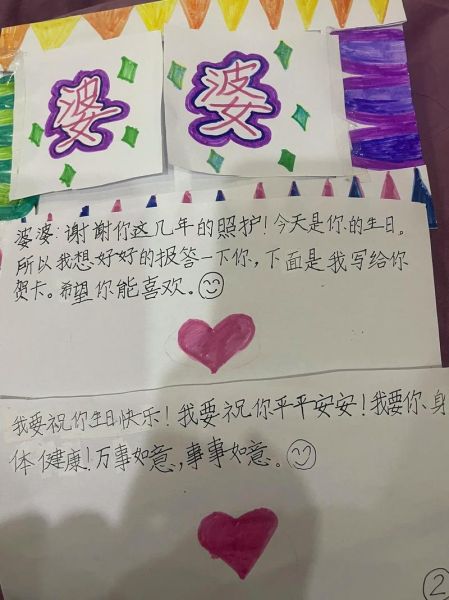 婆 婆
婆婆:谢谢你这几年的照护!今天是你的生日。
所以我想好好的报答一下你,下面是我写给你
贺卡。希望你能喜欢。
我要祝你生日快乐!我要祝你平平安安!我要你身
体健康!万事如意,事事如意。
2